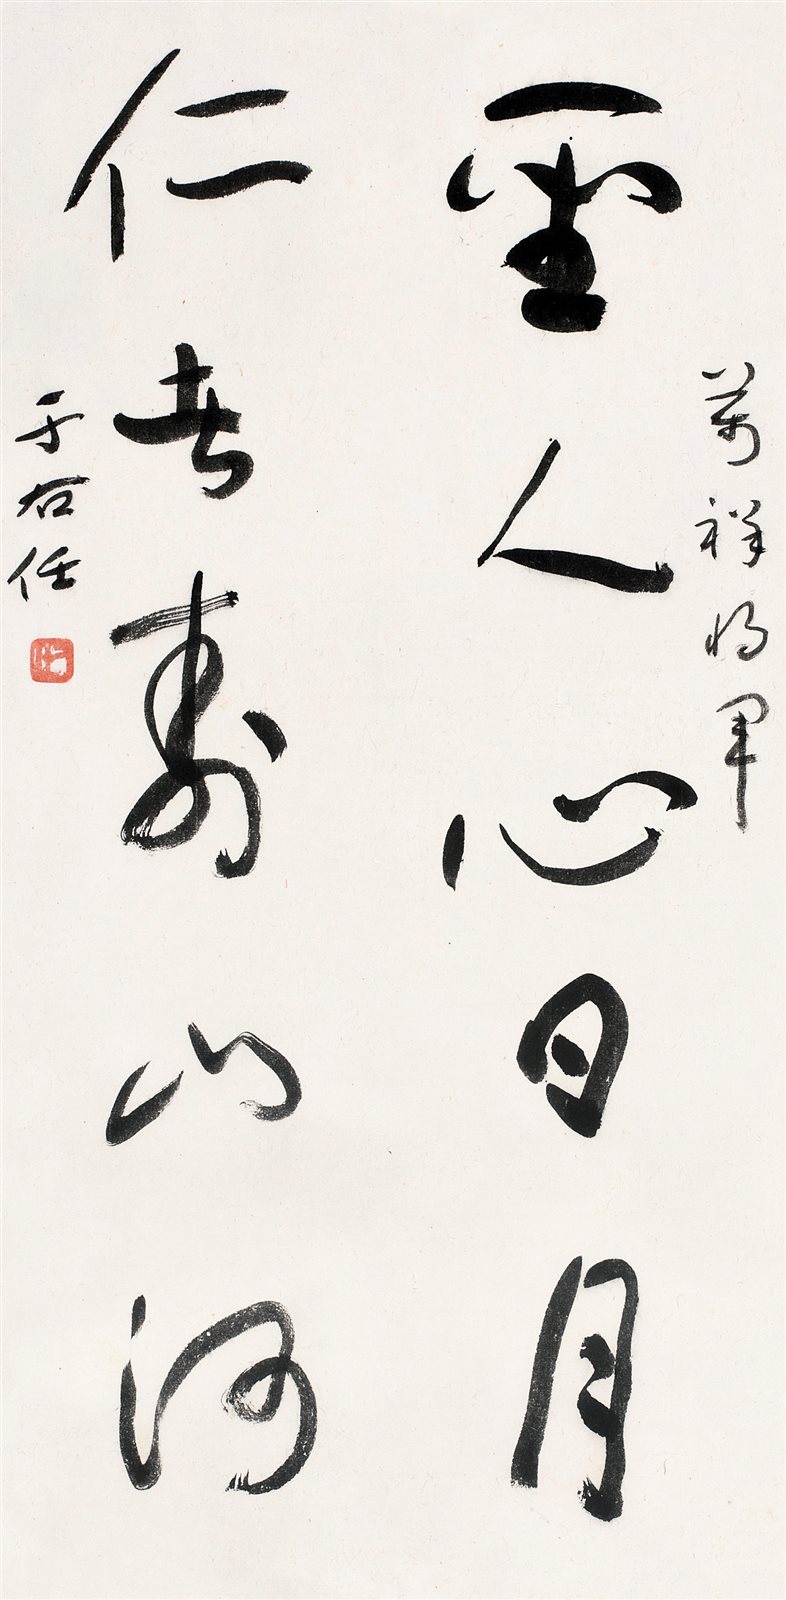 萬祥將軍
聖人心日月
仁者壽山河
于右任